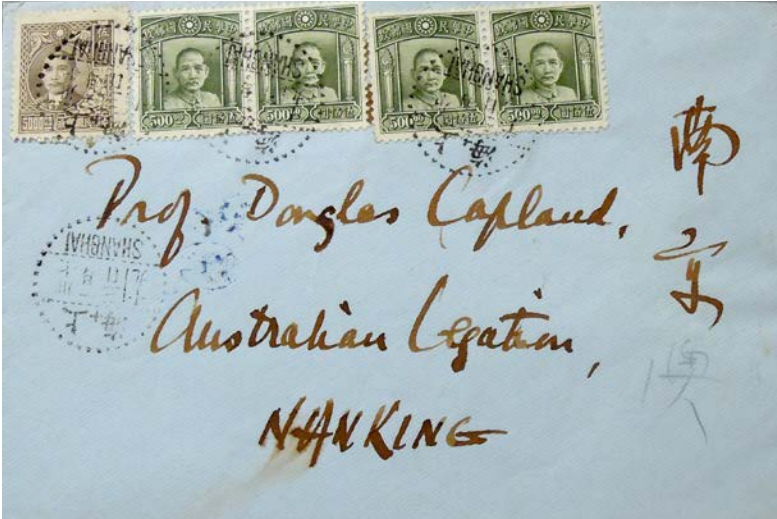 5000
中華民國郵政
500
500
中華民國郵政
500
500
SHANGHAI
SHANGHAI
SHANGHAI
Prof. Douglas Copland,
Australian Legation,
NANKING
南京
SHANGHAI
澳